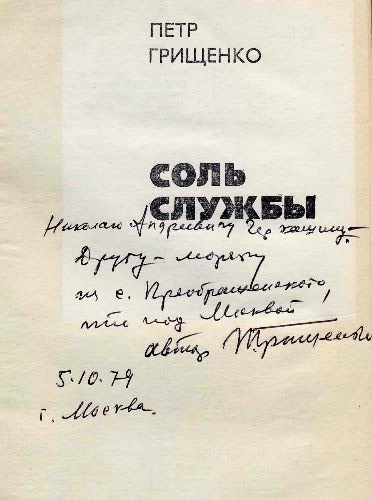 ПЕТР
ГРИЩЕНКО
СОЛЬ
СЛУЖБЫ
Николаю Андреевичу
Другу - моряку
из с. Преображенского,
что под Москвой
автор Грищенко
5.10.79
г. Москва.